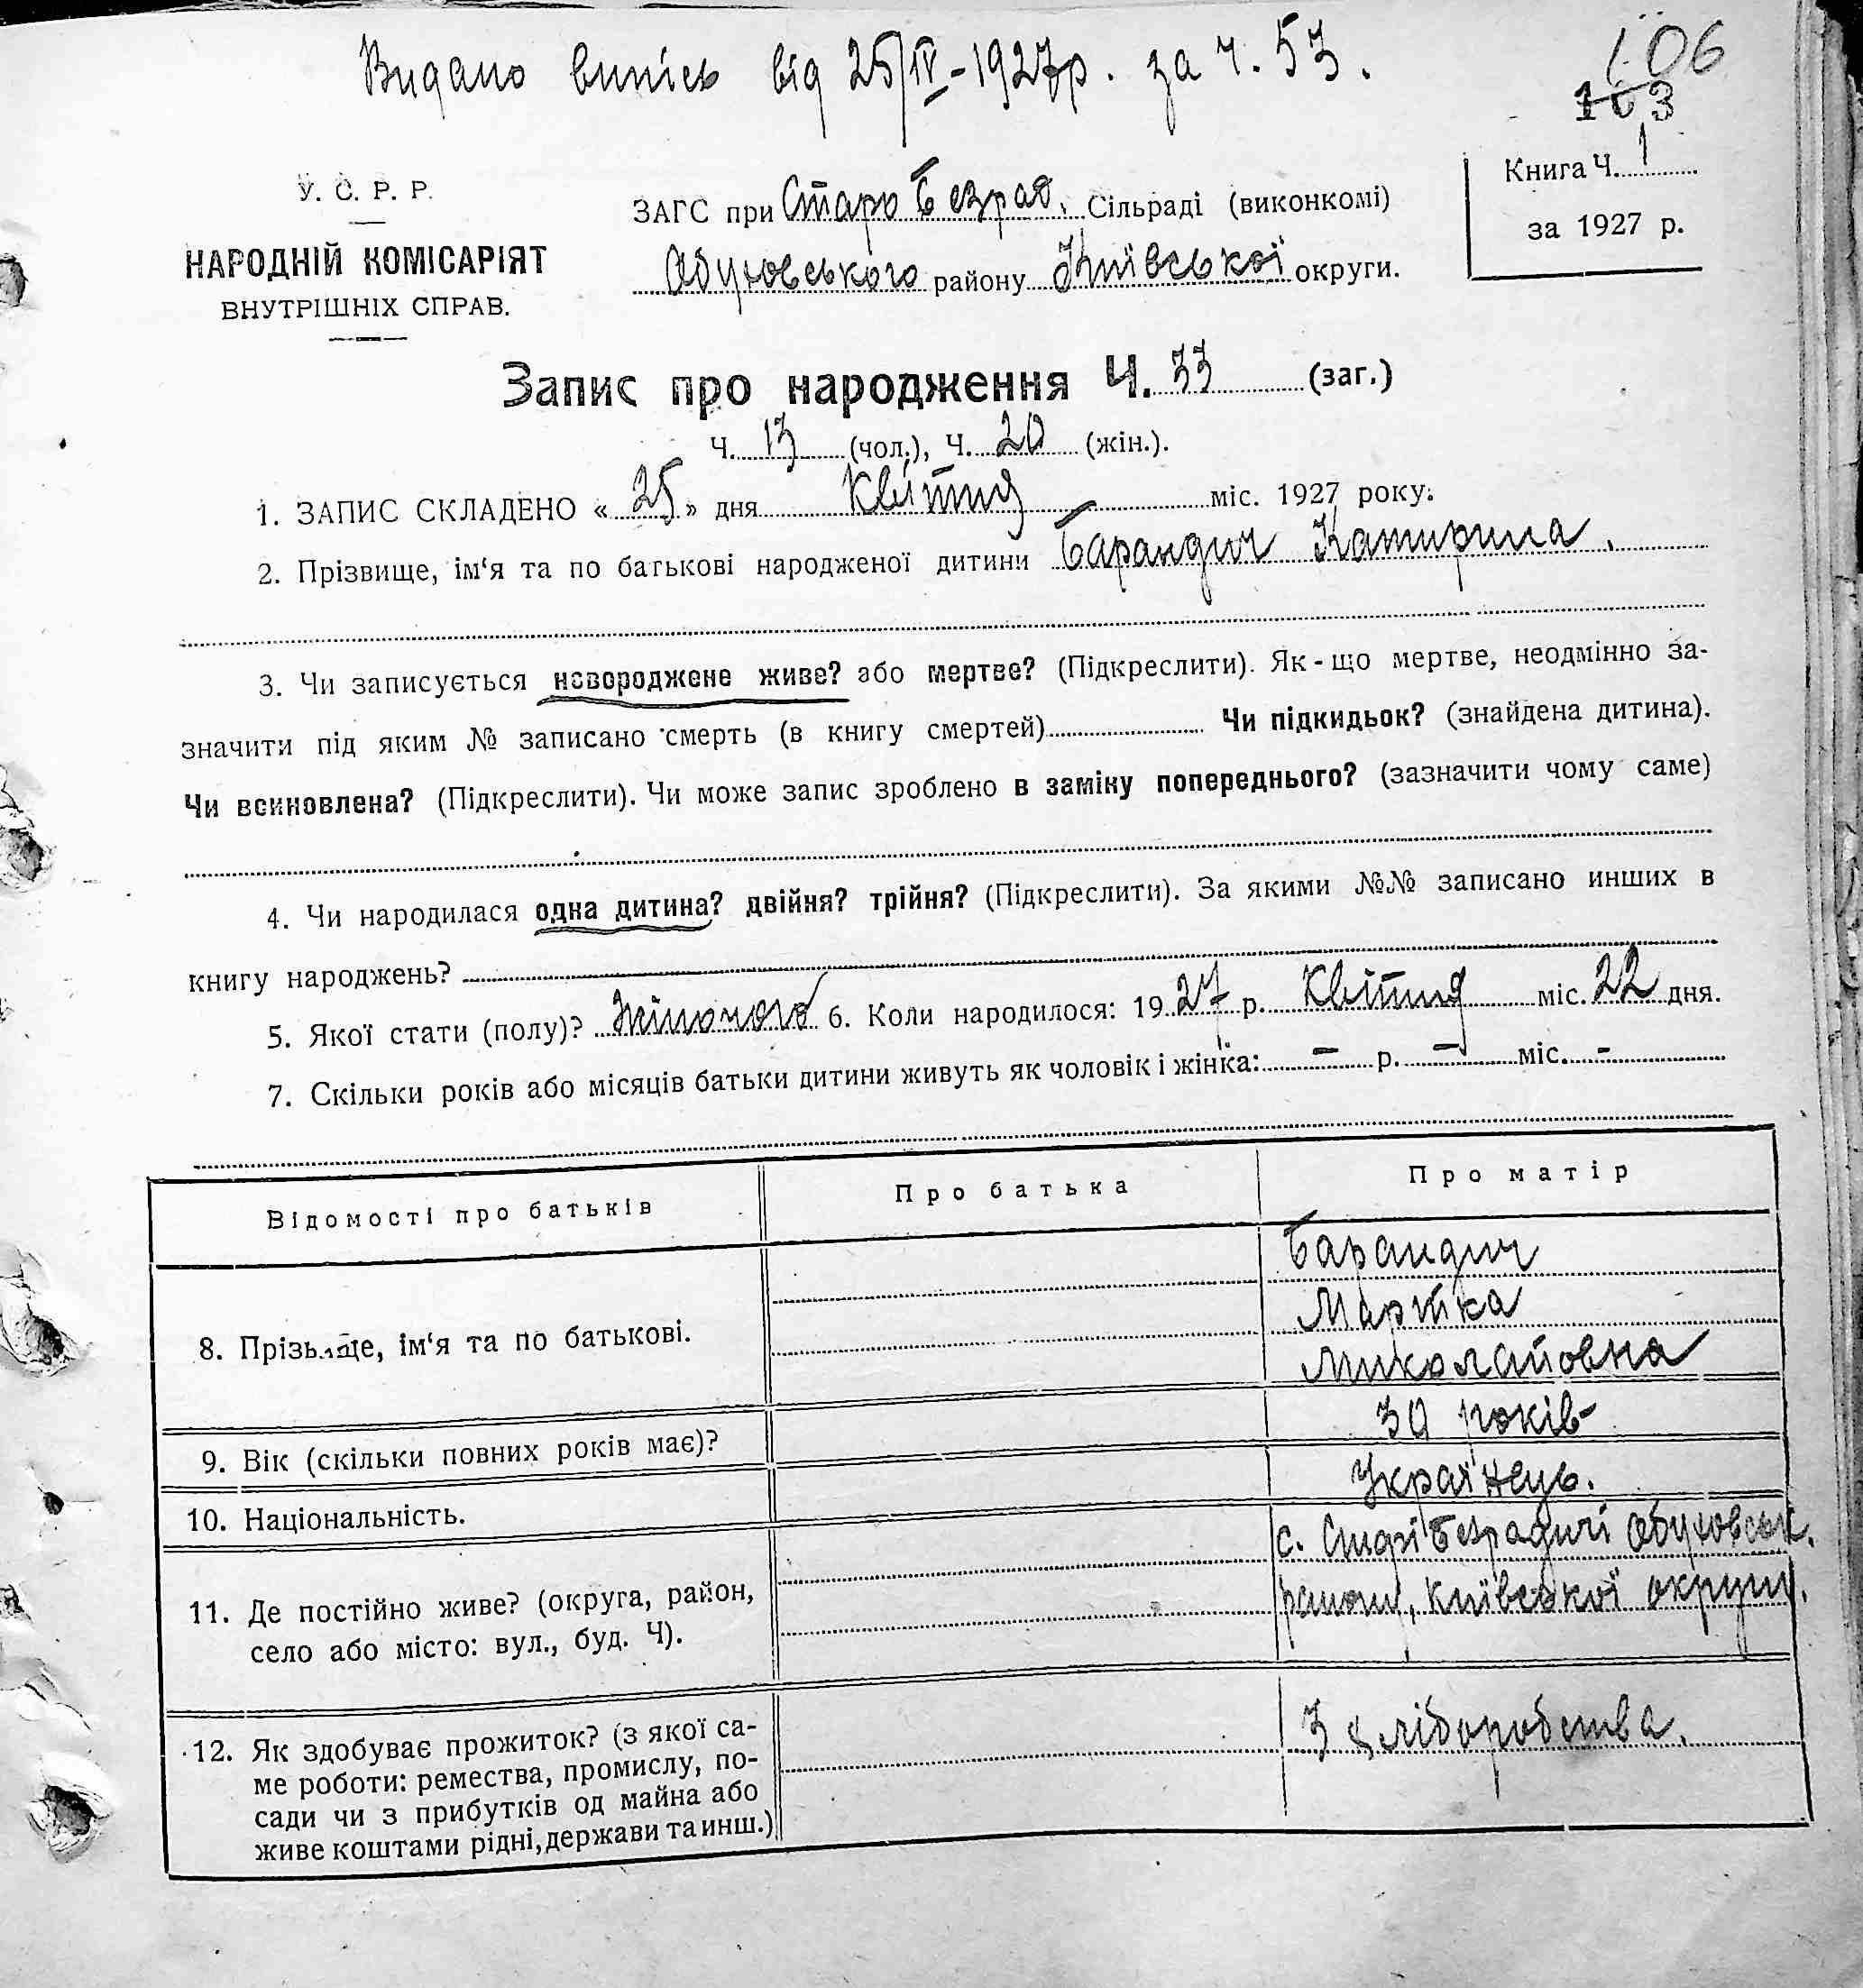 Видано випісь від 25/IV-1927р. за ч. 53.
106
103
У. С. Р. Р.
НАРОДНІЙ КОМІСАРІЯТ
ВНУТРІШНІХ СПРАВ.
ЗАГС при Старо Безрад. Сільраді (виконкомі)
Обуховського району Київської округи.
Книга Ч. 1
за 1927 р.
Запис про народження Ч. 33 (заг.)
Ч. 13 (чол.), Ч. 20 (жін.).
1. ЗАПИС СКЛАДЕНО « 25 » дня Квітня міс. 1927 року.
2. Прізвище, ім‘я та по батькові народженої дитини Барандич Катирина.
3. Чи записується новороджене живе? або мертве? (Підкреслити). Як-що мертве, неодмінно за-
значити під яким № записано смерть (в книгу смертей) Чи підкидьок? (знайдена дитина).
Чи всиновлена? (Підкреслити). Чи може запис зроблено в заміну попереднього? (зазначити чому саме)
4. Чи народилася одна дитина? двійня? трійня? (Підкреслити). За якими №№ записано инших в
книгу народжень?
5. Якої стати (полу)? Жіночого 6. Коли народилося: 1927 р. Квітня міс. 22 дня.
7. Скільки років або місяців батьки дитини живуть як чоловік і жінка: — р. — міс. -
Відомості про батьків Про батька Про матір
8. Прізвище, ім‘я та по батькові.
Барандич
Мартка
Миколайовна
9. Вік (скільки повних років має)? 39 років-
10. Національність. Українець.
11. Де постійно живе? (округа, район,
село або місто: вул., буд. Ч).
с. Старі Безрадичі Обуховськ.
району, Київської округи.
12. Як здобуває прожиток? (з якої са-
ме роботи: ремества, промислу, по-
сади чи з прибутків од майна або
живе коштами рідні, держави та инш.)
З хліборобства.